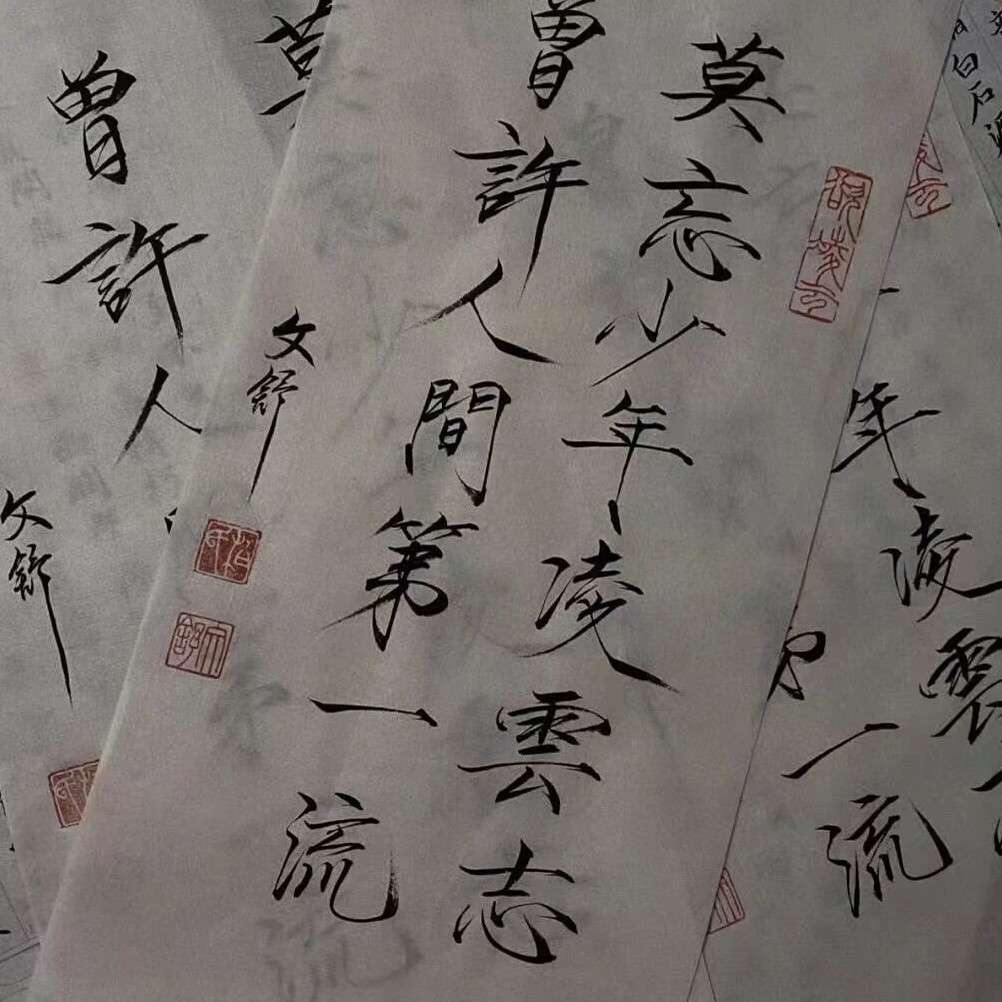 莫忘少年凌雲志
曾許人間第一流
文舒
曾許人
文舒
年凌雲
一流
白石